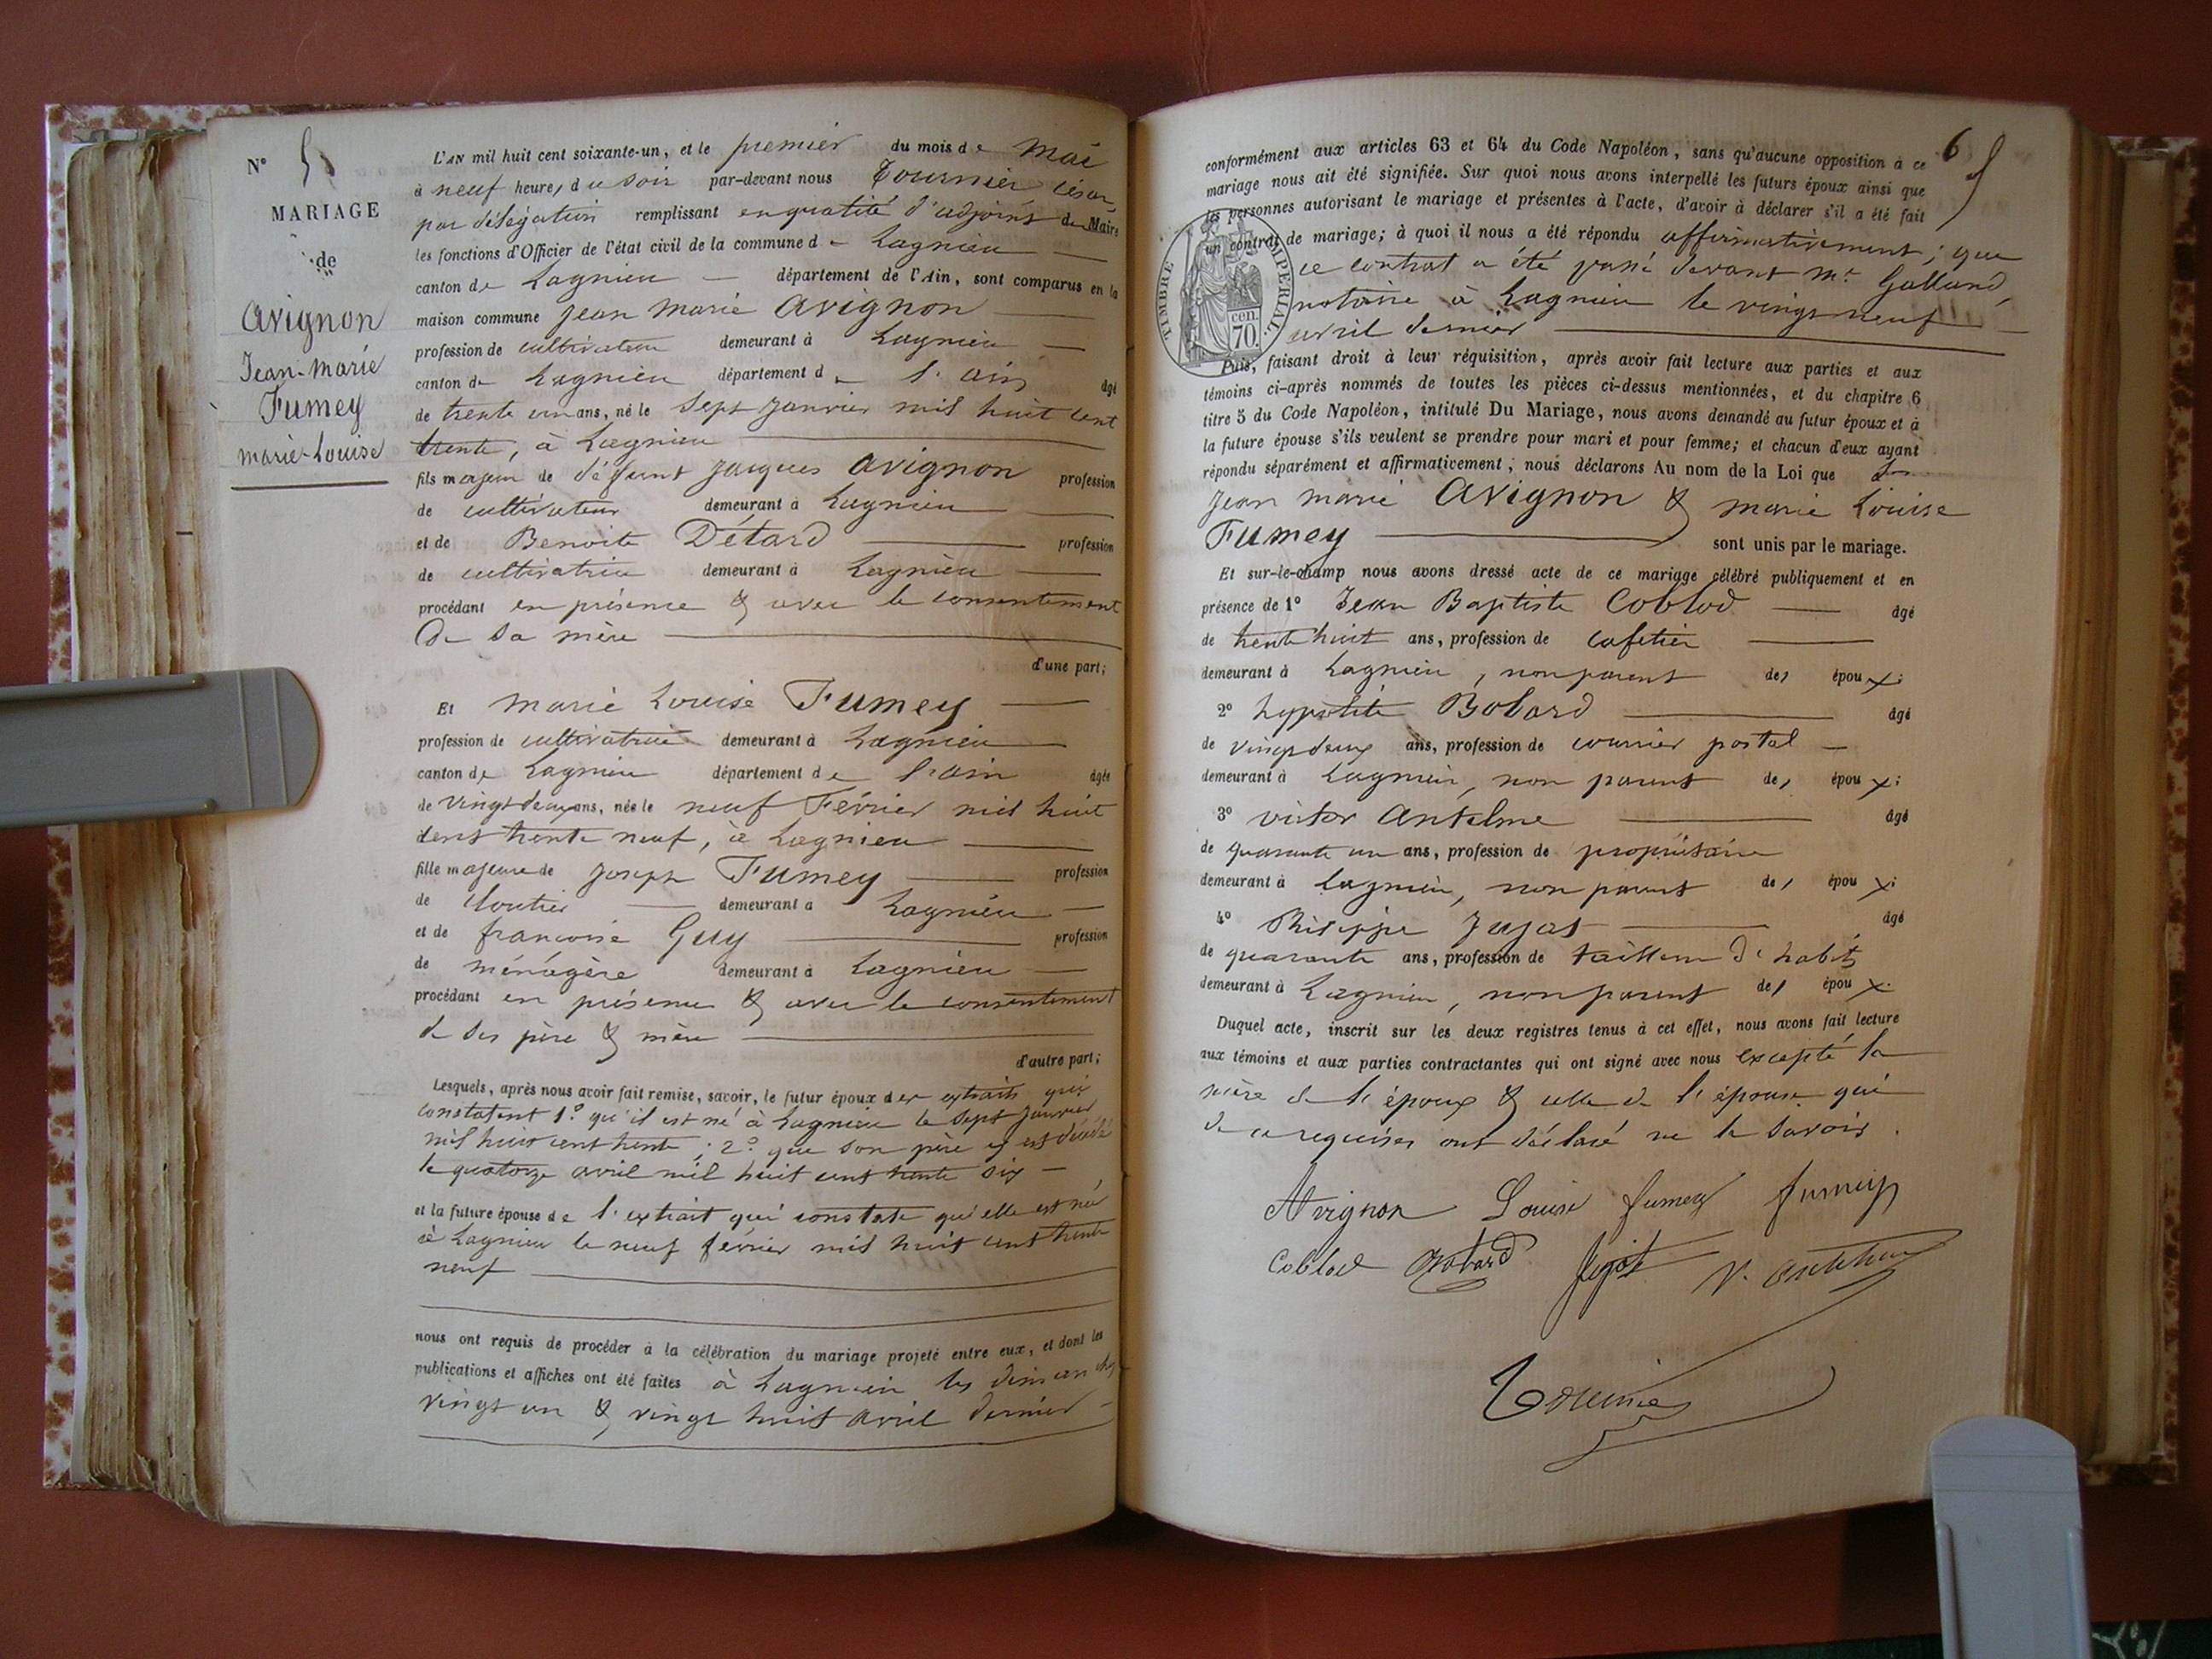 N° 5
MARIAGE
de
Avignon
Jean-Marie
Fumey
marie-Louise
L'AN mil huit cent soixante-un, et le premier du mois de Mai
à neuf heures du soir par-devant nous Tournier César,
par délégation remplissant en qualité d'adjoint du Maire
les fonctions d'Officier de l'état civil de la commune de Lagnieu
canton de Lagnieu département de l'Ain, sont comparus en la
maison commune Jean Marie Avignon
profession de cultivateur demeurant à Lagnieu
canton de Lagnieu département de l'ain âgé
de trente un ans, né le sept Janvier mil huit cent
trente, à Lagnieu
fils majeur de défunt Jacques Avignon profession
de cultivateur demeurant à Lagnieu
et de Benoite Détard profession
de cultivatrice demeurant à Lagnieu
procédant en présence & avec le consentement
De sa mère
d'une part;
Et Marie Louise Fumey
profession de cultivatrice demeurant à Lagnieu
canton de Lagnieu département de l'ain âgée
de vingt deux ans, née le neuf Février mil huit
cent trente neuf, à Lagnieu
fille majeure de Joseph Fumey profession
de cloutier demeurant à Lagnieu
et de francoise Guy profession
de ménagère demeurant à Lagnieu
procédant en présence & avec le consentement
de ses père & mère
d'autre part;
Lesquels, après nous avoir fait remise, savoir, le futur époux des extraits qui
constatent 1° qu'il est né à Lagnieu le sept Janvier
mil huit cent trente; 2° que son père y est décédé
le quatorze avril mil huit cent trente six
et la future épouse de l'extrait qui constate qu'elle est née
à Lagnieu le neuf février mil huit cent trente
neuf
nous ont requis de procéder à la célébration du mariage projeté entre eux, et dont les
publications et affiches ont été faites à Lagnieu les dimanches
vingt un & vingt huit avril dernier
6
conformément aux articles 63 et 64 du Code Napoléon, sans qu'aucune opposition à ce
mariage nous ait été signifiée. Sur quoi nous avons interpellé les futurs époux ainsi que
les personnes autorisant le mariage et présentes à l'acte, d'avoir à déclarer s'il a été fait
un contrat de mariage; à quoi il nous a été répondu affirmativement; que
ce contrat a été passé devant Me Galland,
notaire à Lagnieu le vingt neuf
avril dernier
TIMBRE IMPERIAL
cen. 70.
Puis, faisant droit à leur réquisition, après avoir fait lecture aux parties et aux
témoins ci-après nommés de toutes les pièces ci-dessus mentionnées, et du chapitre 6
titre 5 du Code Napoléon, intitulé Du Mariage, nous avons demandé au futur époux et à
la future épouse s'ils veulent se prendre pour mari et pour femme; et chacun d'eux ayant
répondu séparément et affirmativement, nous déclarons Au nom de la Loi que
Jean Marie Avignon & Marie Louise
Fumey sont unis par le mariage.
Et sur-le-champ nous avons dressé acte de ce mariage célébré publiquement et en
présence de 1° Jean Baptiste Coblod âgé
de trente huit ans, profession de cafetier
demeurant à Lagnieu, non parent des époux;
2° hyppolite Bobard âgé
de vingt deux ans, profession de courrier postal
demeurant à Lagnieu, non parent des époux;
3° victor Antelme âgé
de quarante un ans, profession de propriétaire
demeurant à Lagnieu, non parent des époux;
4° Philippe Jujat âgé
de quarante ans, profession de tailleur d'habits
demeurant à Lagnieu, non parent des époux.
Duquel acte, inscrit sur les deux registres tenus à cet effet, nous avons fait lecture
aux témoins et aux parties contractantes qui ont signé avec nous excepté la
mère de l'époux & celle de l'épouse qui
de ce requises ont déclaré ne le savoir.
Avignon Louise fumey fumey
Coblod Bobard Jujat V. Antelme
Tournier